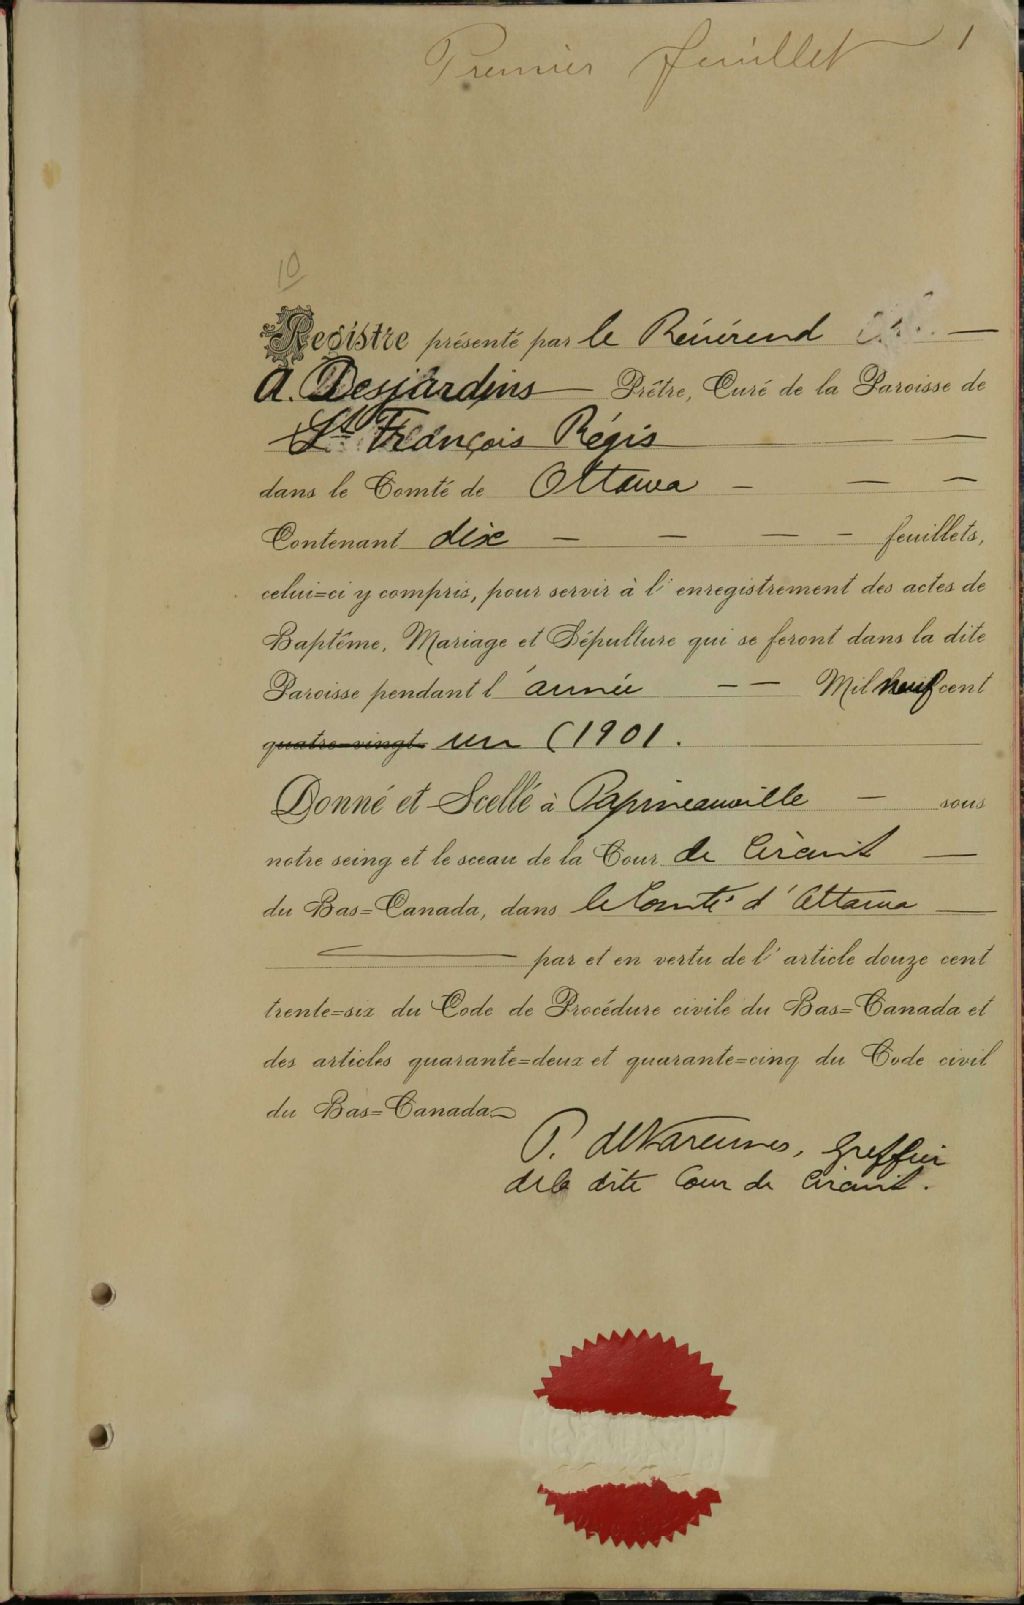 Premier feuillet 1
10
Registre présenté par le Révérend —
A. Desjardins — Prêtre, Curé de la Paroisse de
St François Régis —
dans le Comté de Ottawa — — —
Contenant dix — — — — feuillets,
celui=ci y compris, pour servir à l'enregistrement des actes de
Baptême, Mariage et Sépulture qui se feront dans la dite
Paroisse pendant l'année — — Mil neuf cent
quatre-vingt un (1901.
Donné et Scellé à Papineauville — sous
notre seing et le sceau de la Cour de Circuit —
du Bas=Canada, dans le Comté d'Ottawa —
— par et en vertu de l'article douze cent
trente=six du Code de Procédure civile du Bas=Canada et
des articles quarante=deux et quarante=cinq du Code civil
du Bas=Canada
P. deVarennes, Greffier
de la dite Cour de Circuit.